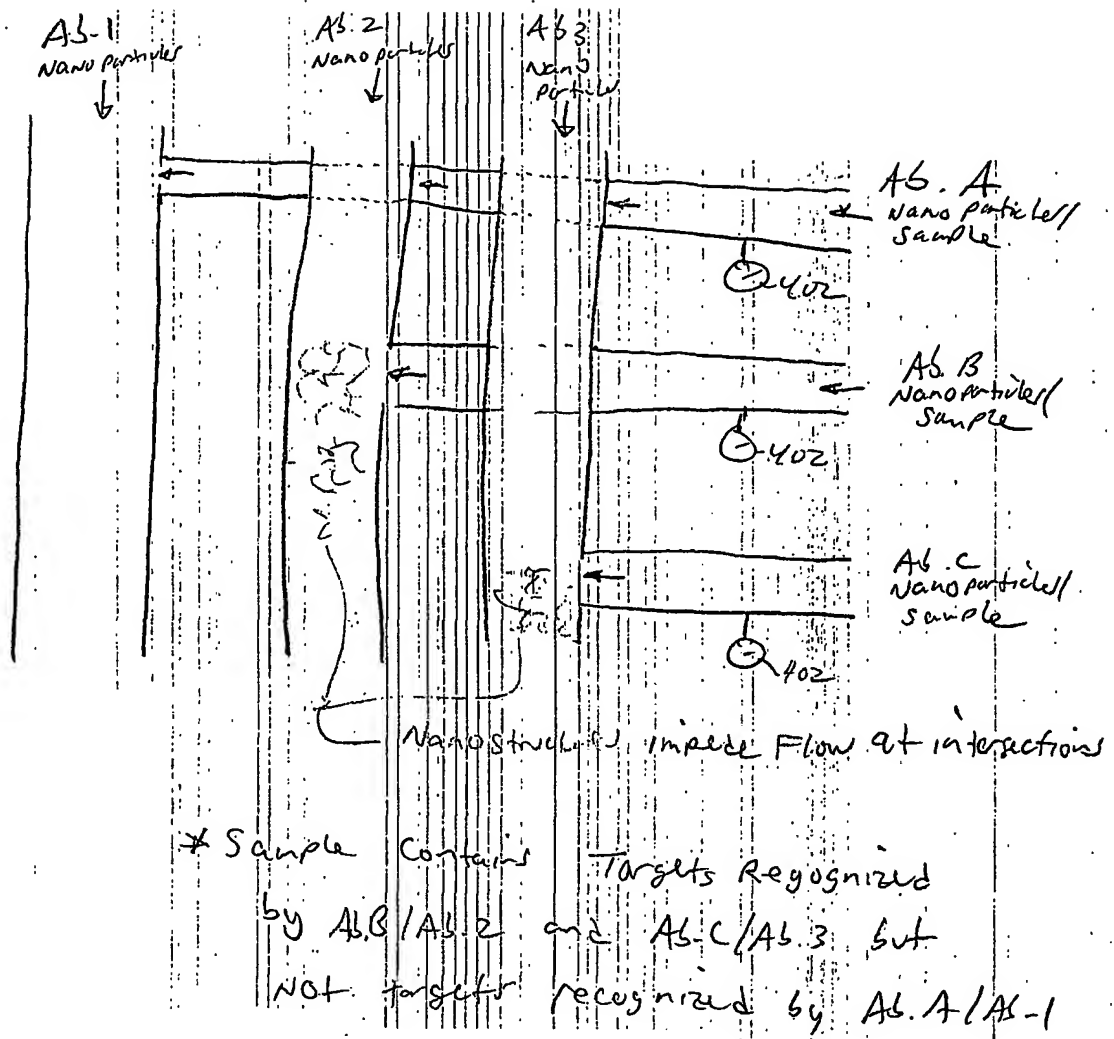 Ab-1
Nanoparticles
Ab.2
Nanoparticles
Ab3
Nano
particles
Ab. A
Nanoparticles/
Sample
402
Ab. B
Nanoparticles/
Sample
402
Ab. C
Nanoparticles/
Sample
402
Nanostructures impede Flow at intersections
* Sample Contains Targets Regognized
by Ab.B/Ab.2 and Ab-C/Ab.3 but
Not targets recognized by Ab.A/Ab-1